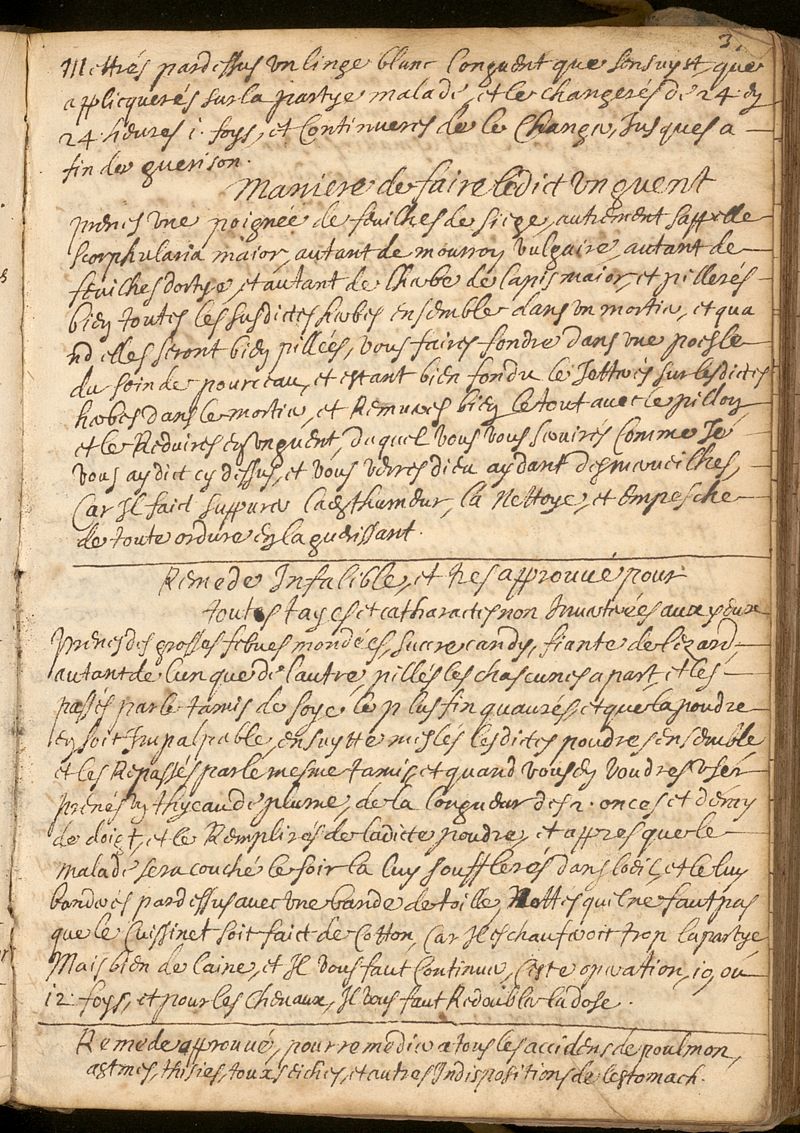 3.
Mettrés pardessus un linge blanc longuent que sensuyst, que
applicquerés sur la partye malade, et le changerés de 24 en
24 heures 1. foys, et Continueres de le Changer, Jusques a
fin de guerison.
Maniere de faire ledict unguent
prenes une poignée de feuilhes de siege, autrement sappelle
scorphularia maior, autant de mourron vulgaire, autant de
feuilhes dortye, et autant de lherbe de lapis maior, et pillerés
bien toutes les susdictes herbes ensemble dans un mortier, et qua
nd elles seront bien pillées, vous faires fondre dans une poesle
du soin de pourceau, et estant bien fondu le Jetterés sur lesdictes
herbes dans le mortier, et Remueres bien le tout avec le pillon
et le Reduires en unguent, duquel vous vous servires Comme Je
vous ay dict cy dessus, et vous verres dieu aydant des merveilhes,
Car Il faict suppurer laditte humeur, la Nettoye, et empesche
de toute ordure en la guerissant.
Remede Infalible, et tres approuvé pour
toutes tayes et catharactes non Inveterées aux yeux
Prenes des grosses febves mondées, succre candy, fiante de lezard,
autant de lun que de lautre, pillés les chascunes a part, et les
passés par le tamis de soye le plus fin quaurés, et que la poudre
en soit Impalpable, ensuytte meslés lesdictes poudres ensemble
et les Repassés par le mesme tamis, et quand vous en voudres user
prenés un thyeau de plume, de la longueur des 2. onces et demy
de doigt, et le Remplirés de ladicte poudre, et appres que le
malade sera couché le soir la luy soufflerés dans loeil, et le luy
banderés pardessus avec une bande de toille, Nottes quil ne faut pas
que le Cuissinet soit faict de Cotton, Car Il eschauferoit trop la partye
Mais bien de laine, et Il vous faut Continuer Ceste operation, 10 ou
12. foys, et pour les chevaux, Il vous faut Redoubler la dose.
Remede approuvé, pour remedier a tous les accidens de poulmon,
astmes, thisies, toux seiches, et autres Indispositions de lestomach.